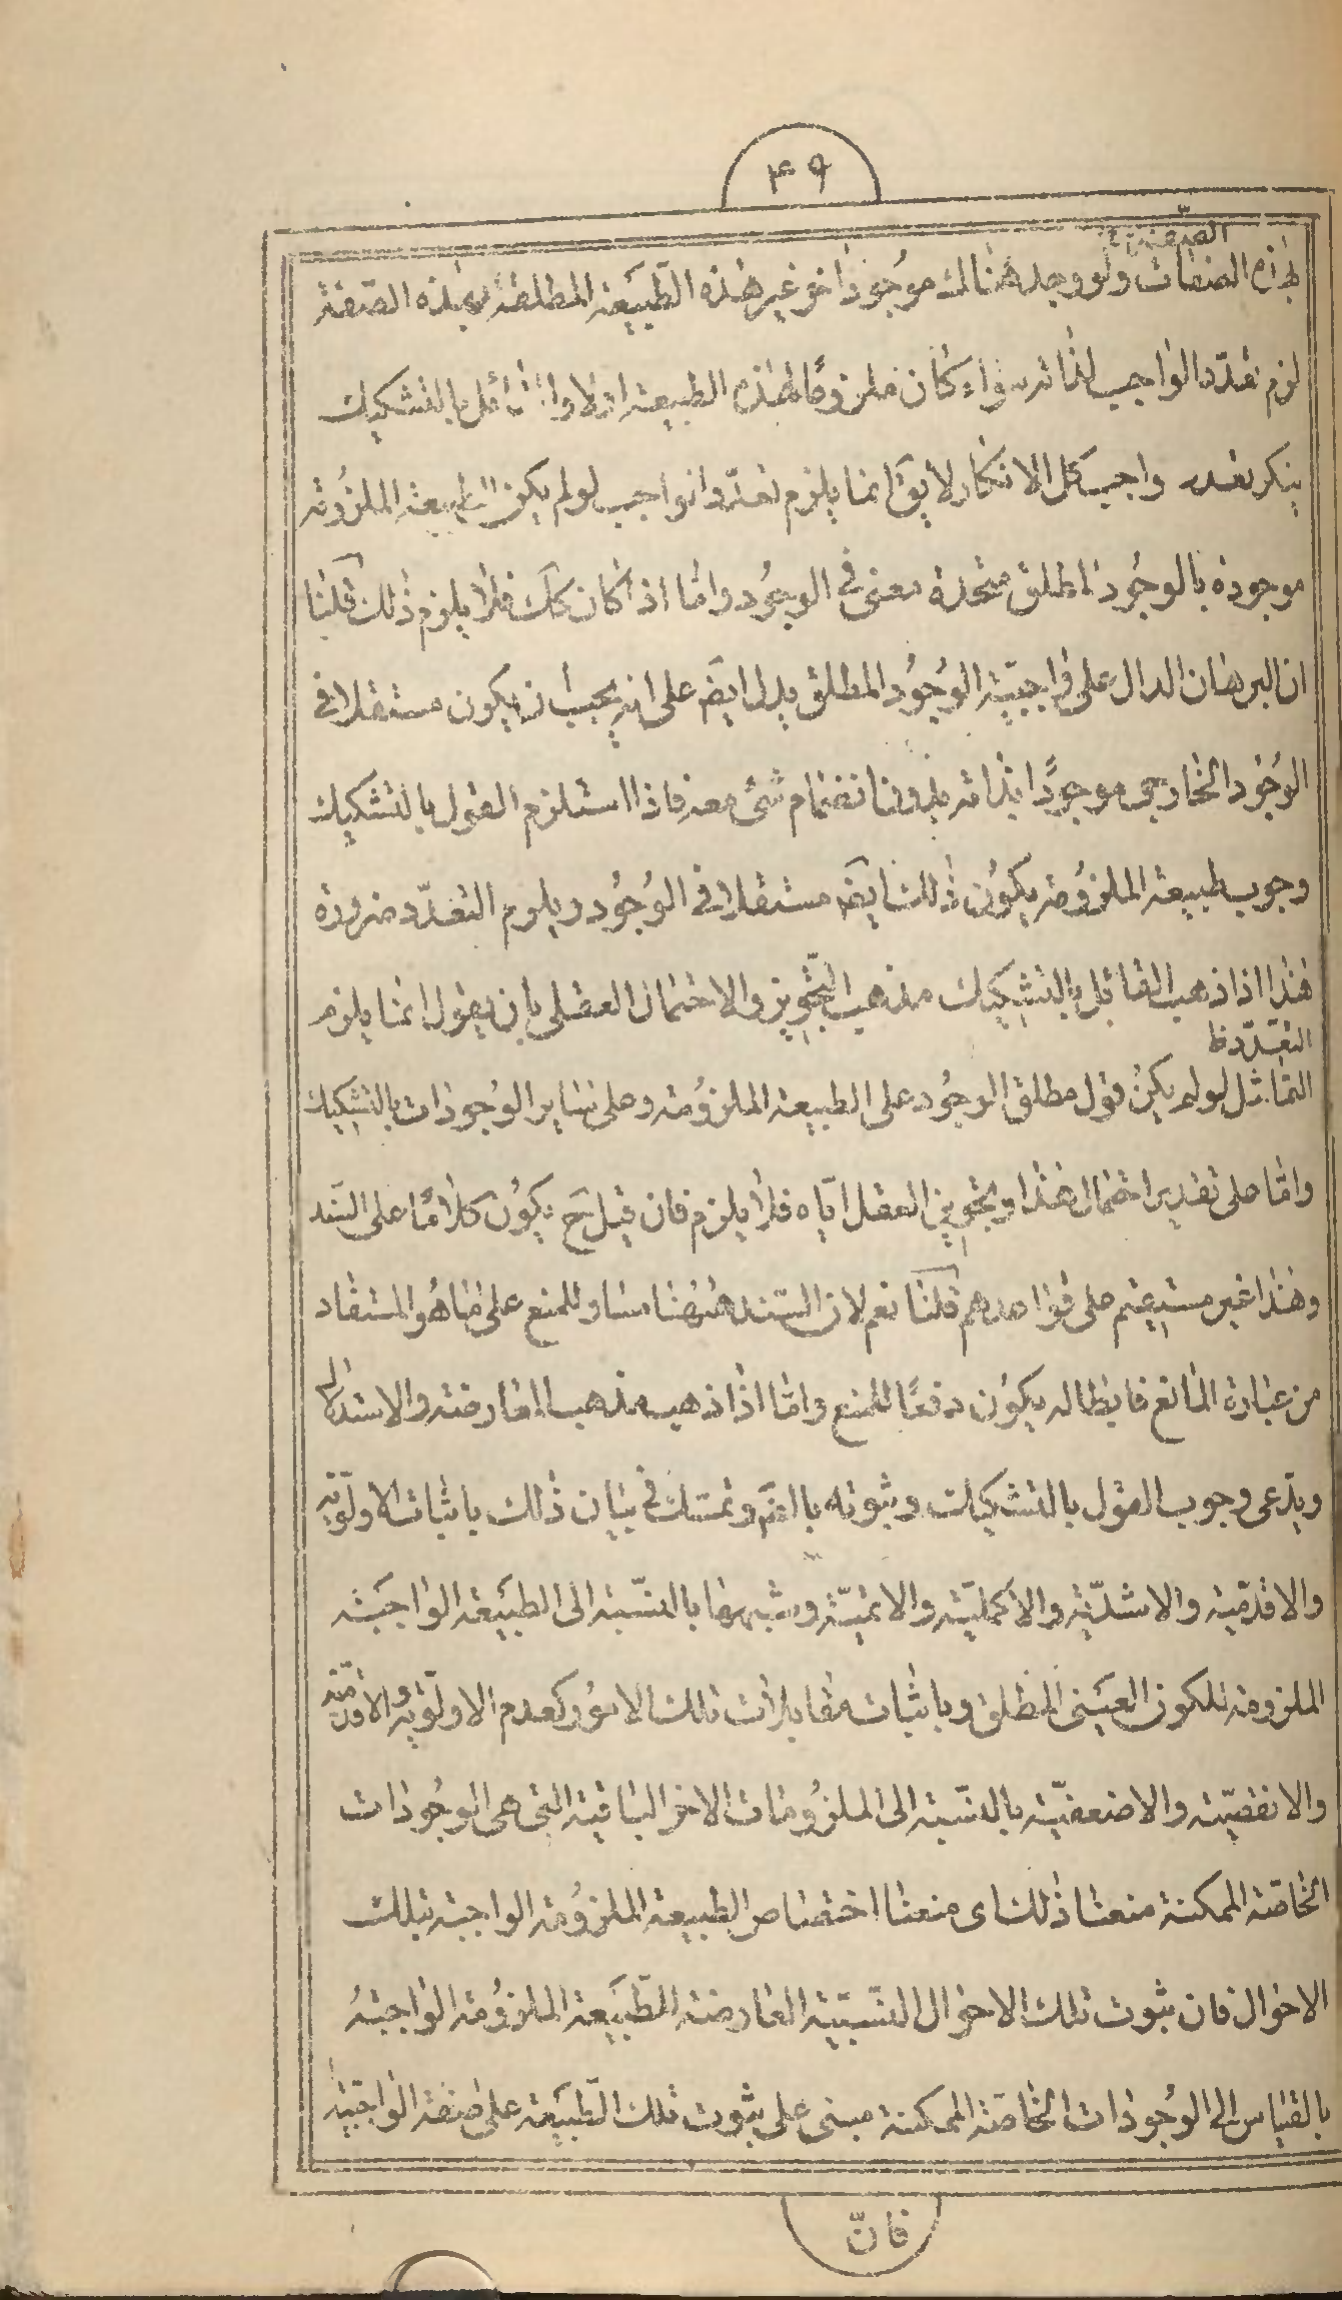 ۴۹
الصفة
بهذه الصفات ولو وجد هنالك موجود اخر غير هذه الطبيعة المطلقة بهذه الصفة
لزم تعدد الواجب لذاته سواء كان ملزومًا لهذه الطبيعة اولا والقائل بالتشكيك
ينكر تعدد واجب كل الانكار لا يقَ انما يلزم تعدّد الواجب لو لم يكن الطبيعة الملزومة
موجودة بالوجود المطلق متحدة معنى في الوجود وامّا اذا كان كك فلا يلزم ذلك قلنا
ان البرهان الدال على واجبيّة الوجود المطلق يدل ايضَ على انه يجب ان يكون مستقلا في
الوجود الخارجى موجودًا بذاته بدون انضمام شئ معه فاذا استلزم القول بالتشكيك
وجوب طبيعة الملزومة يكون ذلك ايضَ مستقلا في الوجود ويلزم التعدّد ضرورة
هذا اذا ذهب القائل بالتشكيك مذهب التّجويز والاحتمال العقلى بان يقول انما يلزم
التعدّد ظ
التماثل لو لم يكن قول مطلق الوجود على الطبيعة الملزومة وعلى ساير الوجودات بالتشكيك
وامّا على تقدير احتمال هذا وتجويز العقل ايّاه فلا يلزم فان قيل حَ يكون كلامًا على السّند
وهذا غير مستقيم على قواعدهم قلنا نعم لان السّند ههنا مساو للمنع على ما هو المستفاد
من عبارة المانع فابطاله يكون دفعًا للمنع وامّا اذا ذهب مذهب المعارضة والاستدلال
ويدّعى وجوب القول بالتشكيك وثبوته بالضَ وتمسّك في بيان ذلك باثبات الاولوّية
والاقدميّة والاشدّية والاكمليّة والاتميّة وشبهها بالنسّبة الى الطبيعة الواجبة
الملزومة للكون العينى المطلق وباثبات مقابلات تلك الامور كعدم الاولوّية والاقدميّة
والانقصيّة والاضعفيّة بالنسّبة الى الملزومات الاخر الباقية التى هى الوجودات
الخاصّة الممكنة منعنا ذلك اى منعنا اختصاص الطبيعة الملزومة الواجبة بتلك
الاحوال فان ثبوت تلك الاحوال النّسبيّة العارضة للطّبيعة الملزومة الواجبة
بالقياس الى الوجودات الخاصّة الممكنة مبنى على ثبوت تلك الطّبيعة على صفة الواجبيّة
فانّ